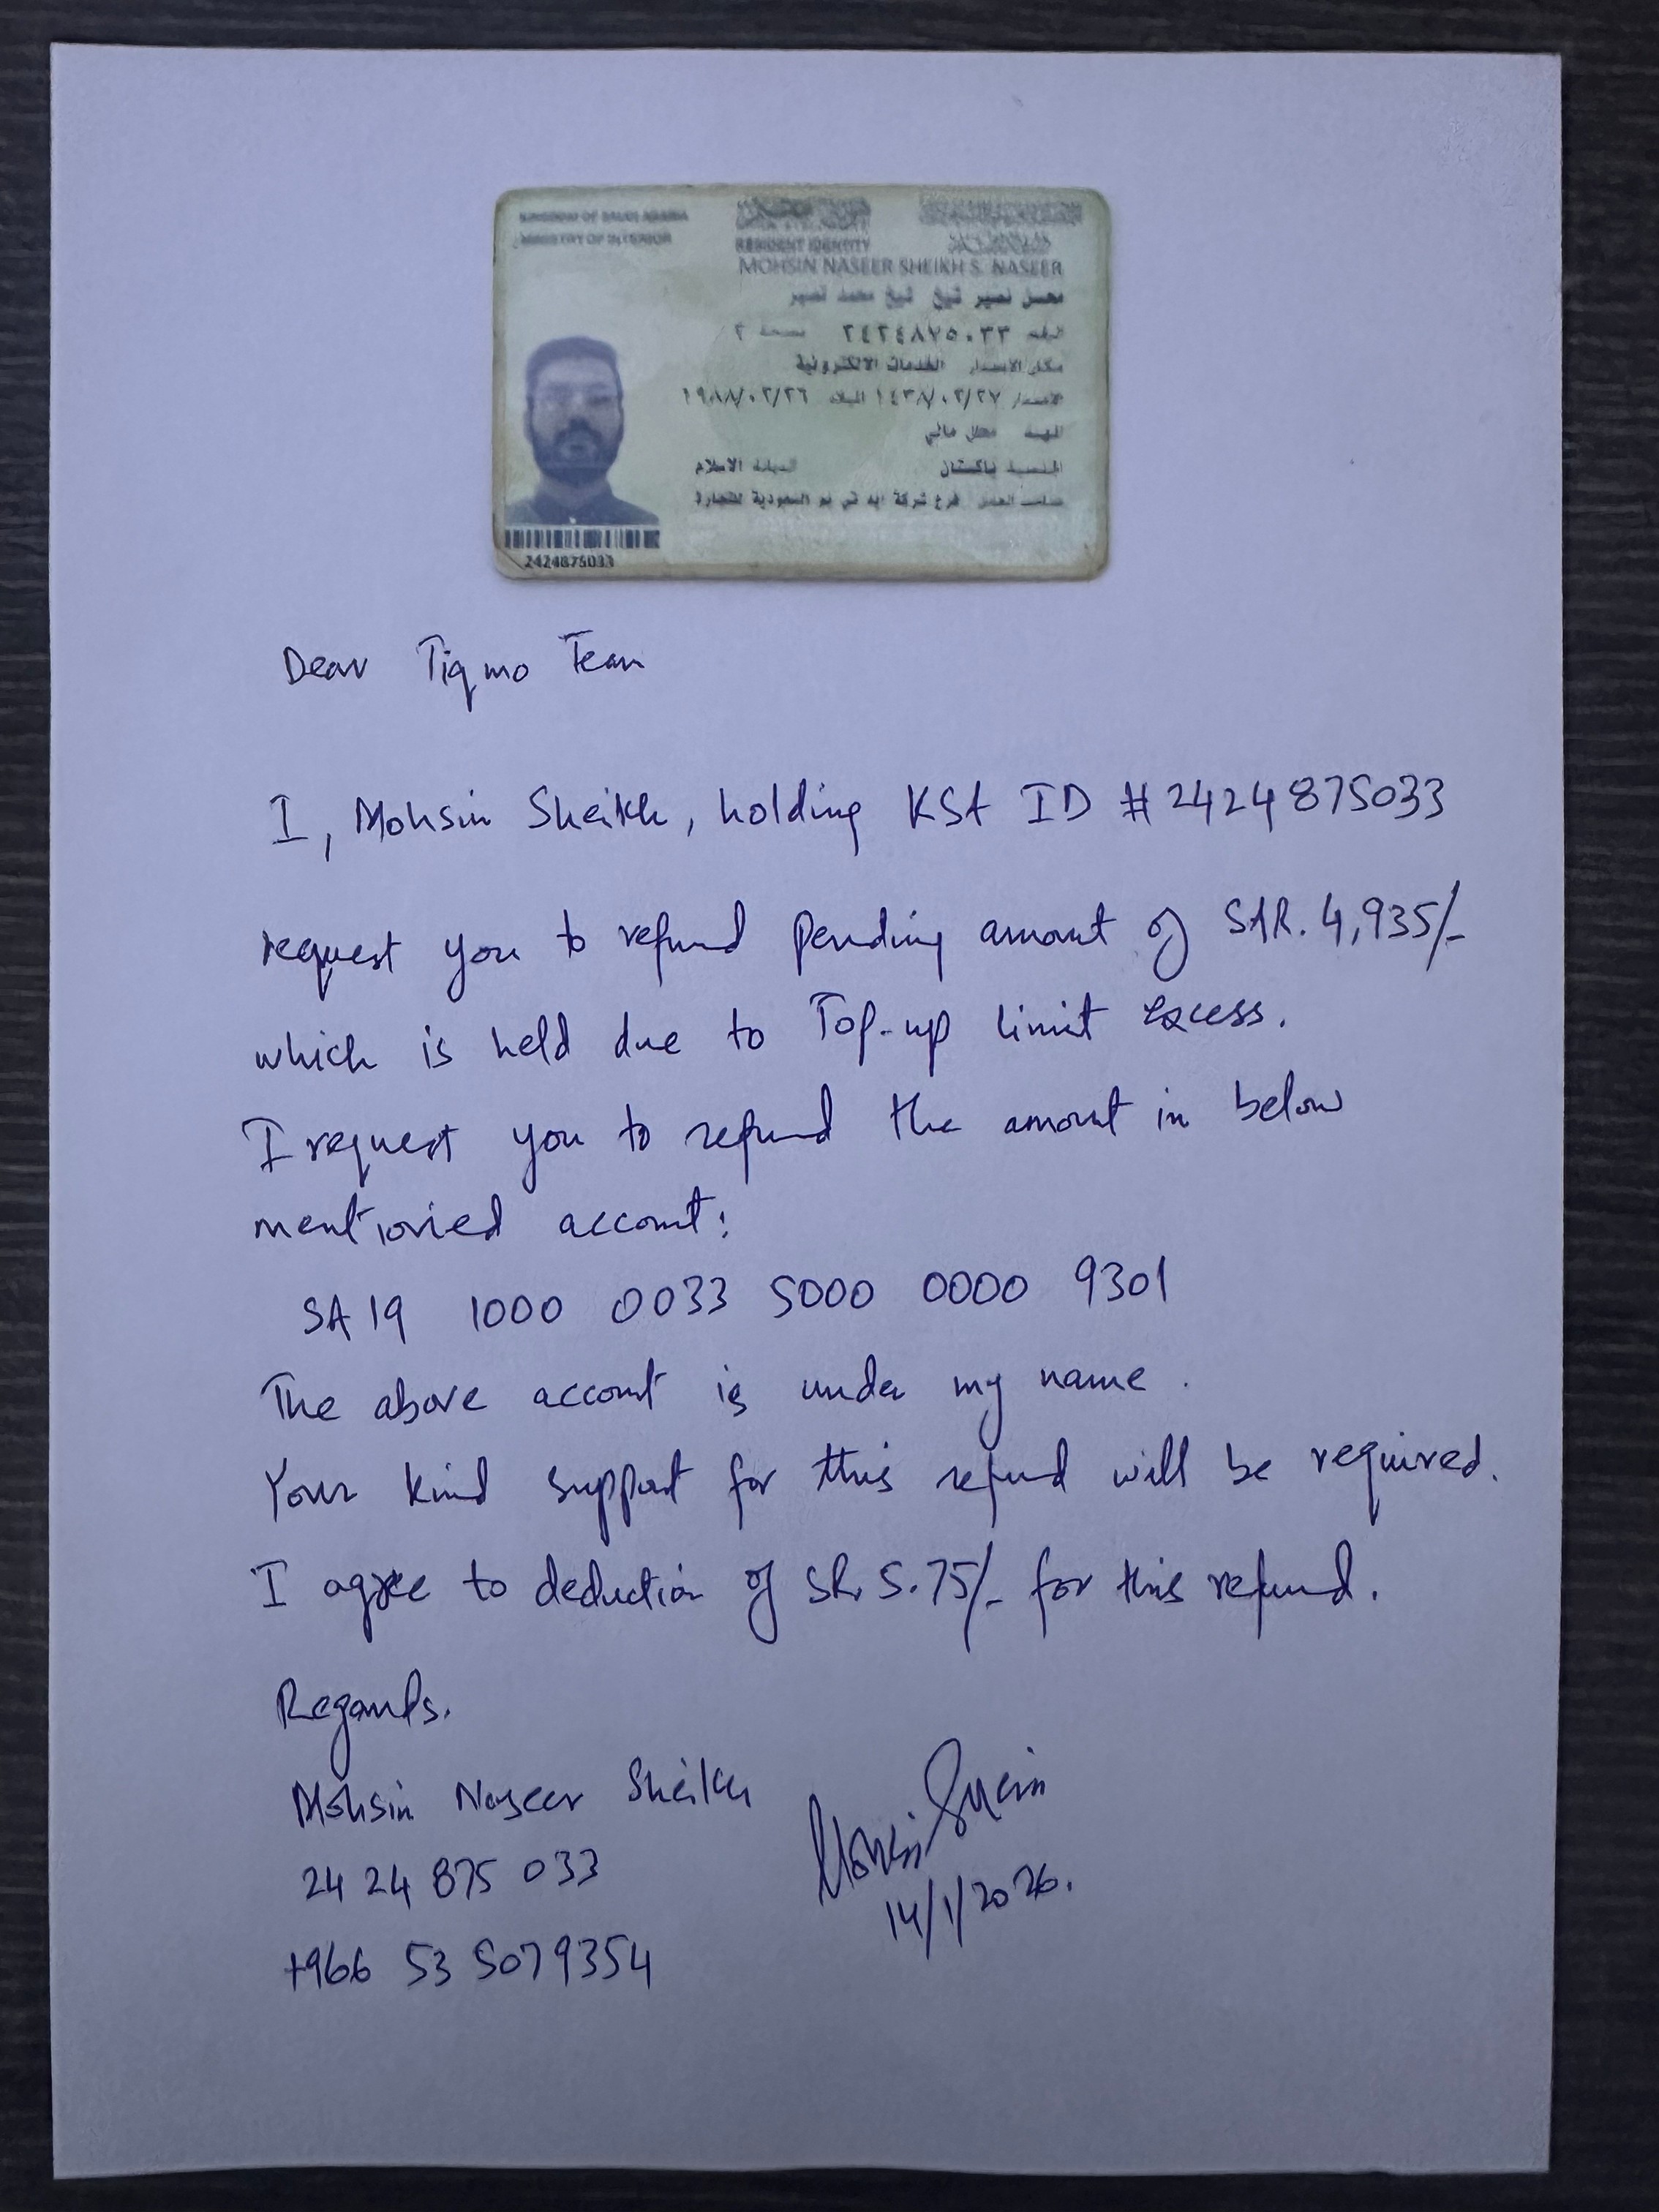 KINGDOM OF SAUDI ARABIA
MINISTRY OF INTERIOR
RESIDENT IDENTITY
MOHSIN NASEER SHEIKH S. NASEER
محسن نصير شيخ شيخ محمد نصير
الرقم ٢٤٢٤٨٧٥٠٣٣ نسخة ٢
مكان الاصدار الخدمات الالكترونية
الاصدار ١٤٣٨/٠٢/٢٧ الميلاد ١٩٨٨/٠٢/٢٦
المهنة محلل مالي
الجنسية باكستان الديانة الاسلام
صاحب العمل فرع شركة ايه تي بم السعودية للتجارة
2424875033
Dear Tiqmo Team
I, Mohsin Sheikh, holding KSA ID # 2424875033
request you to refund pending amount of SAR. 4,935/-
which is held due to Top-up limit excess.
I request you to refund the amount in below
mentioned account:
SA 19 1000 0033 5000 0000 9301
The above account is under my name.
Your kind support for this refund will be required.
I agree to deduction of SR. 5.75/- for this refund.
Regards.
Mohsin Naseer Sheikh
24 24 875 033
+966 53 5079354
14/1/2026.